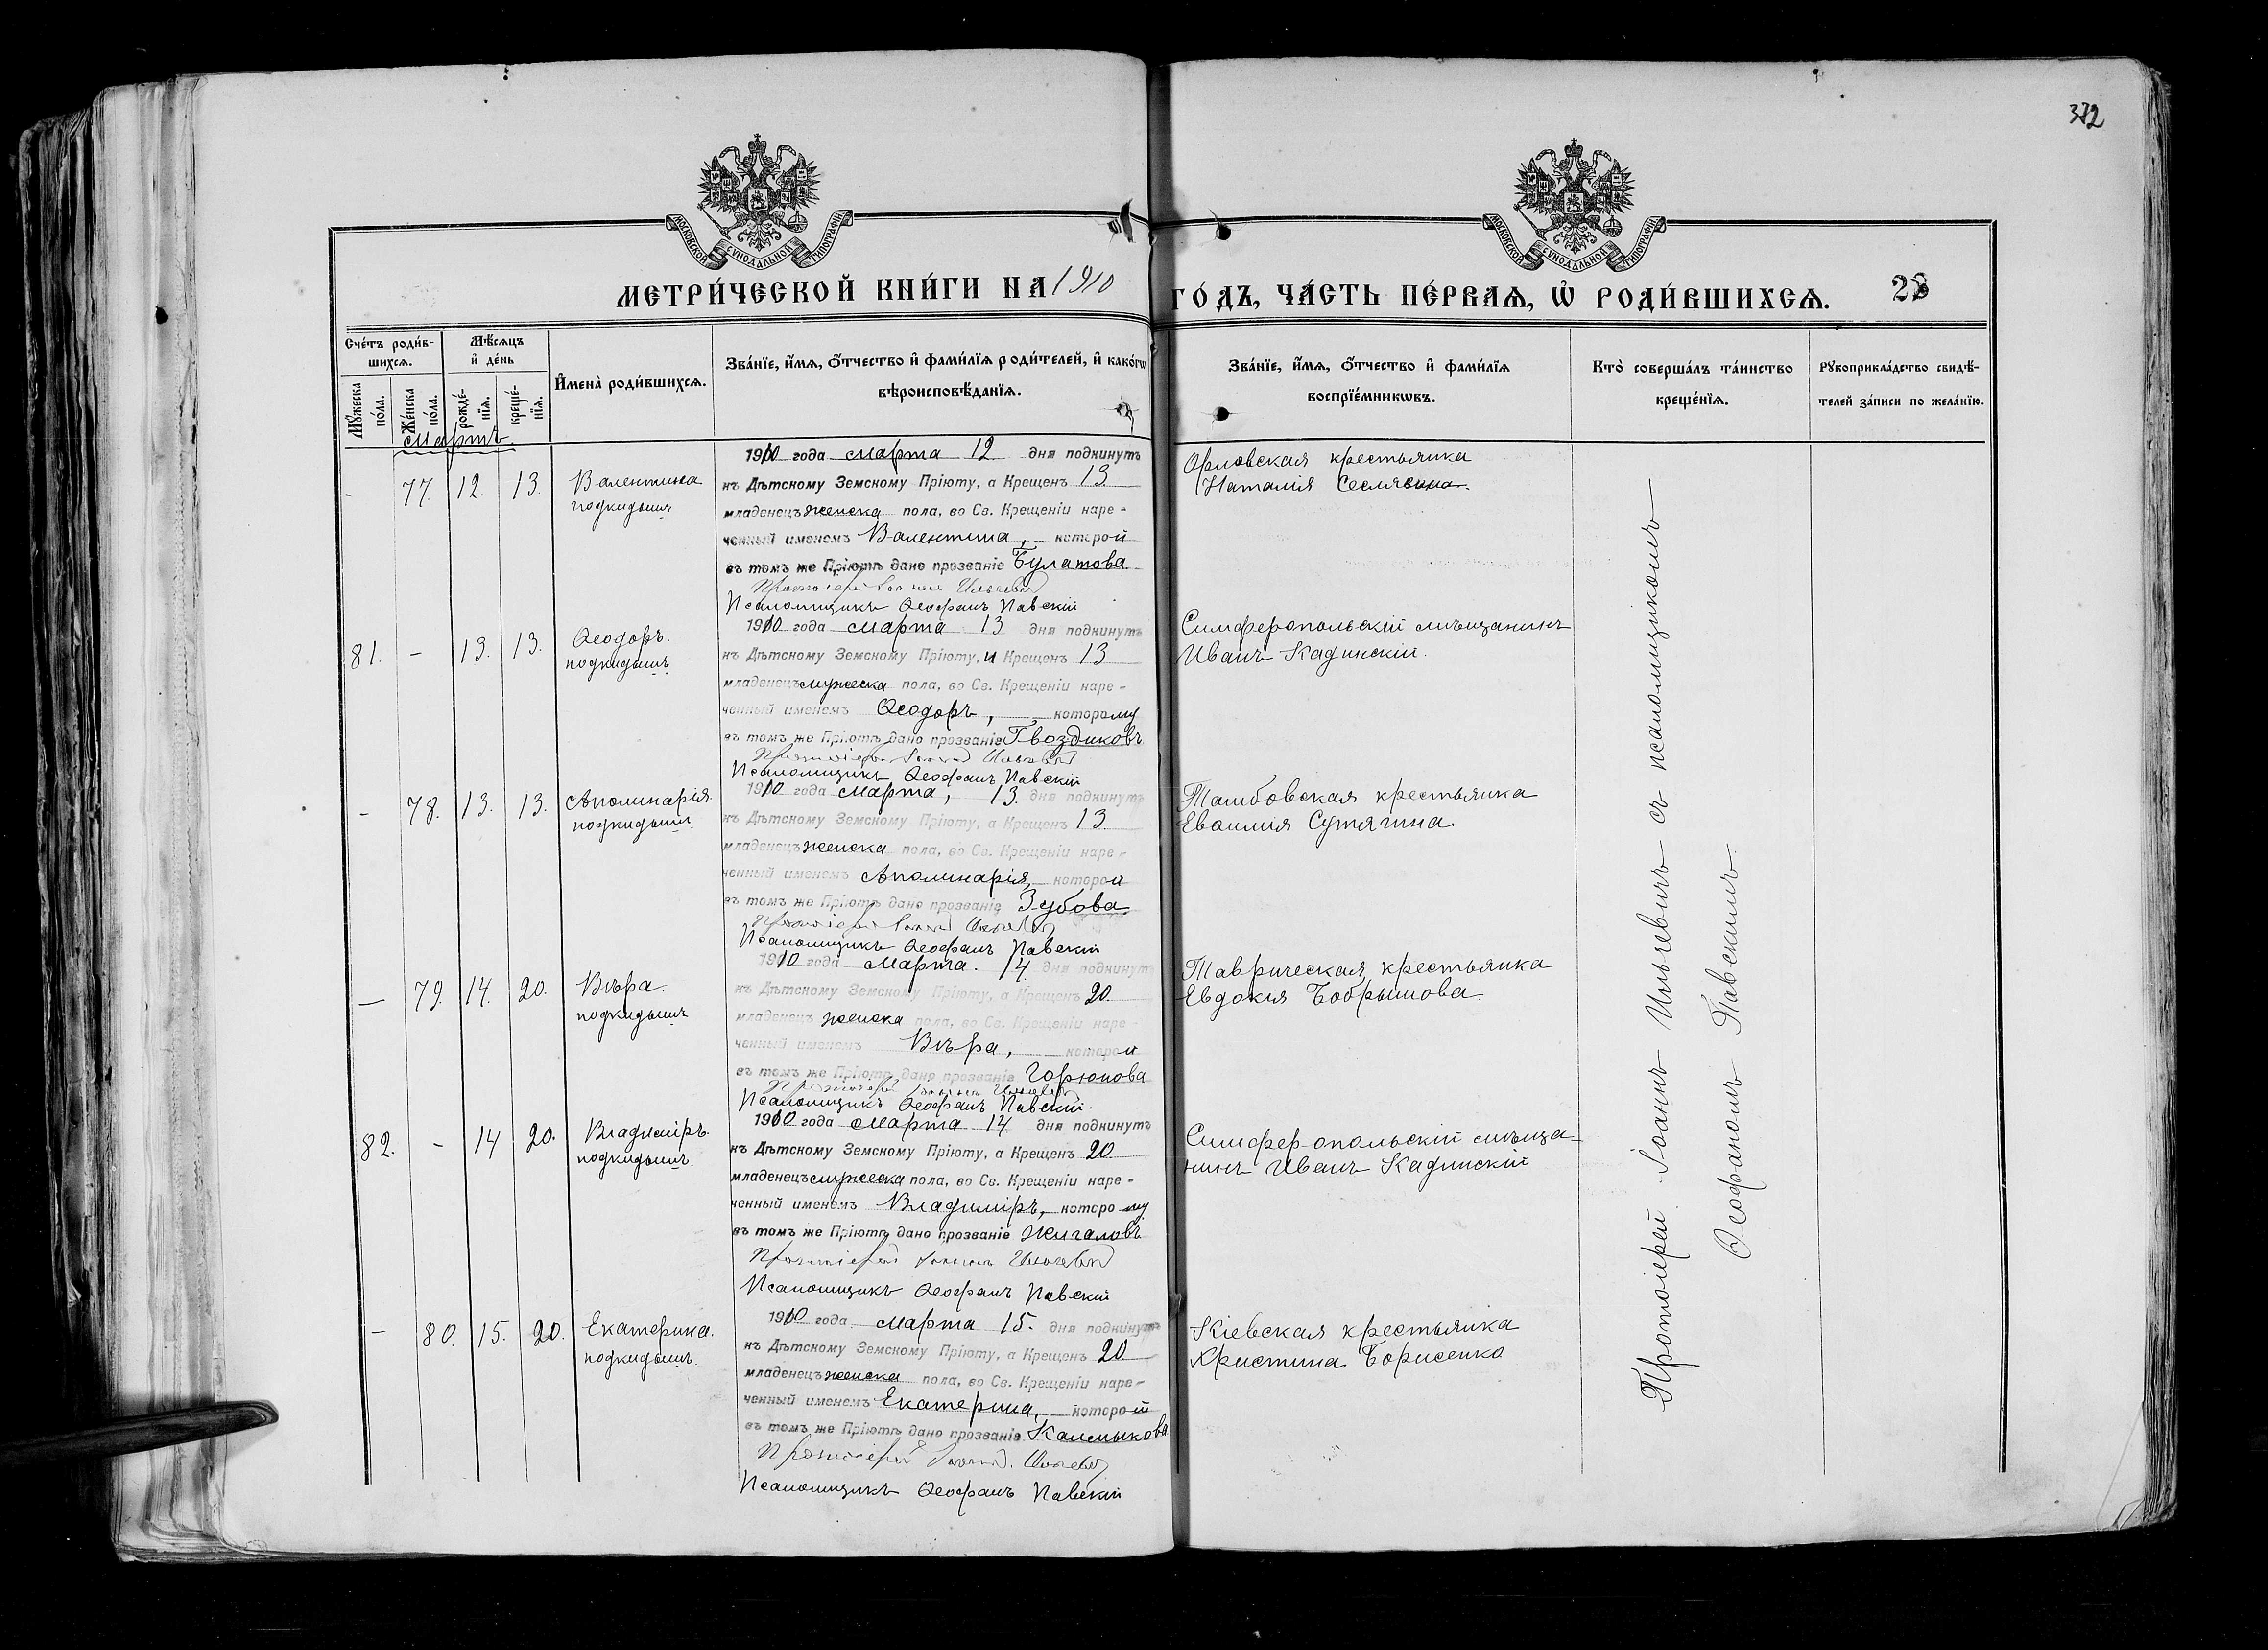 372
МОСКОВСКОЙ СѴНОДАЛЬНОЙ ТИПОГРАФІИ
МОСКОВСКОЙ СѴНОДАЛЬНОЙ ТИПОГРАФІИ
МЕТРИ́ЧЕСКОЙ КНИ́ГИ НА 1910 ГО́ДЪ, ЧА́СТЬ ПЕ́РВАѦ, Ѡ҆ РОДИ́ВШИХСѦ.
28
Сче́тъ роди́в-
шихсѧ.
Мꙋ́жеска
по́ла.
Же́нска
по́ла.
Мѣ́сѧцъ
и҆ де́нь
рожде́-
нїѧ.
креще́-
нїѧ.
И҆мена̀ роди́вшихсѧ.
Зва́нїе, и҆́мѧ, ѻ҆́тчество и҆ фами́лїѧ роди́телей, и҆ како́гѡ
вѣроисповѣ́данїѧ.
Зва́нїе, и҆́мѧ, ѻ҆́тчество и҆ фами́лїѧ
воспрїе́мникѡвъ.
Кто̀ соверша́лъ та́инство
креще́нїѧ.
Рꙋкоприкла́дство свидѣ́-
телей за́писи по жела́нїю.
Мартъ.
- 77. 12. 13. Валентина
подкидышъ
1910 года марта 12 дня подкинутъ
къ Дѣтскому Земскому Пріюту, а Крещенъ 13
младенецъ женска пола, во Св. Крещеніи наре-
ченный именемъ Валентина, которой
въ томъ же Пріютѣ дано прозваніе Булатова.
Протоіерей Іоаннъ Ильчевич
Псаломщикъ Ѳеофанъ Павскій
Орловская крестьянка
Наталія
81. - 13. 13. Ѳеодоръ.
подкидышъ.
1910 года марта 13 дня подкинутъ
къ Дѣтскому Земскому Пріюту, и Крещенъ 13
младенецъ мужеска пола, во Св. Крещеніи наре-
ченный именемъ Ѳеодоръ, которому
въ томъ же Пріютѣ дано прозваніе Гвоздиковъ
Протоіерей Іоаннъ Ильчевич
Псаломщикъ Ѳеофанъ Павскій
Симферопольскій мѣщанинъ
Иванъ Кадинскій.
- 78. 13. 13. Аполинарія.
подкидышъ.
1910 года марта, 13. дня подкинутъ
къ Дѣтскому Земскому Пріюту, а Крещенъ 13
младенецъ женска пола, во Св. Крещеніи наре-
ченный именемъ Аполинарія, которой
въ томъ же Пріютѣ дано прозваніе Зубова.
Протоіерей Іоаннъ Ильчевич
Псаломщикъ Ѳеофанъ Павскій
Тамбовская крестьянка
Сутягина.
- 79. 14. 20. Вѣра.
подкидышъ
1910 года марта. 14 дня подкинутъ
къ Дѣтскому Земскому Пріюту, а Крещенъ 20.
младенецъ женска пола, во Св. Крещеніи наре-
ченный именемъ Вѣра, которой
въ томъ же Пріютѣ дано прозваніе Горюнова
Протоіерей Іоаннъ Ильчевич
Псаломщикъ Ѳеофанъ Павскій.
Таврическая крестьянка
Евдокія Бобрышова.
82. - 14 20. Владиміръ.
подкидышъ.
1910 года марта 14 дня подкинутъ
къ Дѣтскому Земскому Пріюту, а Крещенъ 20
младенецъ мужеска пола, во Св. Крещеніи наре-
ченный именемъ Владиміръ, которому
въ томъ же Пріютѣ дано прозваніе Жигаловъ
Протоіерей Іоаннъ Ильчевич
Псаломщикъ Ѳеофанъ Павскій
Симферопольскій мѣща-
нинъ Иванъ Кадинскій
- 80. 15. 20. Екатерина.
подкидышъ.
1910 года. марта 15. дня подкинутъ
къ Дѣтскому Земскому Пріюту, а Крещенъ 20
младенецъ женска пола, во Св. Крещеніи наре-
ченный именемъ Екатерина, которой
въ томъ же Пріютѣ дано прозваніе Калмыкова.
Протоіерей Іоаннъ. Ильчевич
Псаломщикъ Ѳеофанъ Павскій
Кіевская крестьянка
Христина Борисенко
Протоіерей Іоаннъ Ильчевичъ съ псаломщикомъ
Ѳеофаномъ Павскимъ.